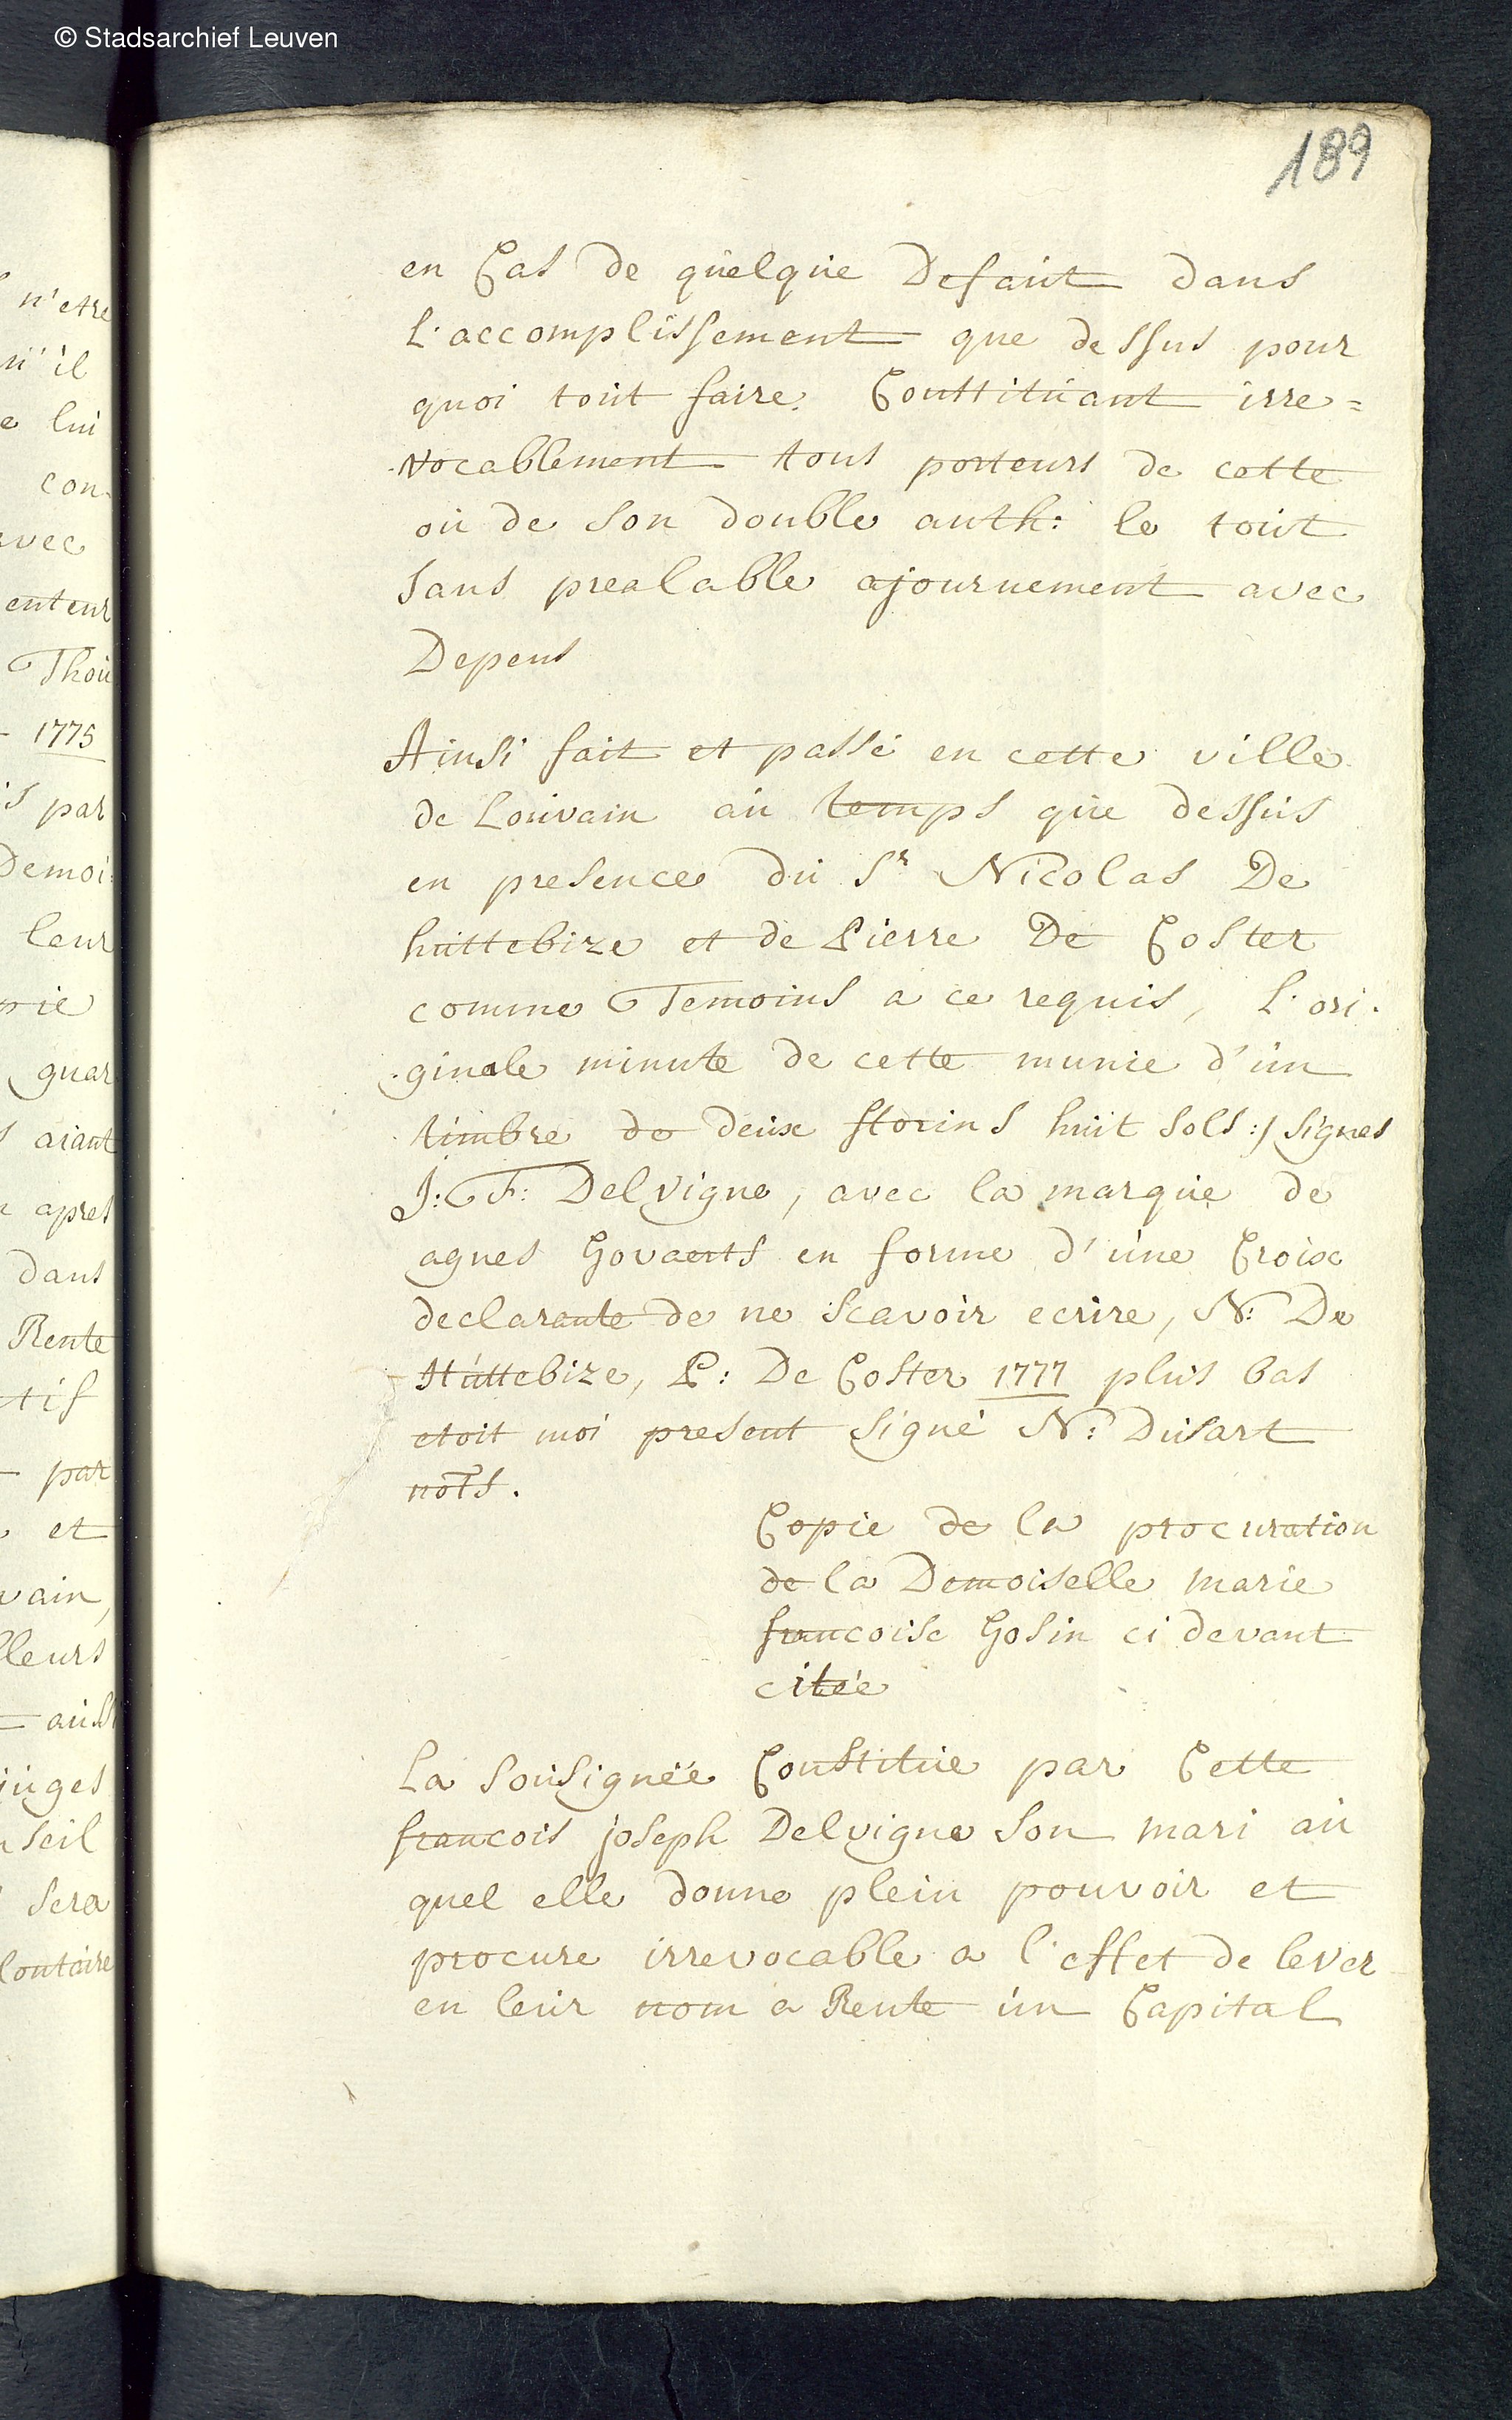 © Stadsarchief Leuven
189
n'etre
n'il
e lui
con-
avec
enteur
Thoü
1775
is par
Demoi:
leur
pie
guar
s aiant
n apres
dans
Rente
tif
par
et
vain,
lleurs
aüssi
jüges
nseil
sera
lontaire
en Cas de qüelqüe Defaüt dans
l'accomplissement que dessus pour
quoi toüt faire. Constitüant irre=
vocablement tous porteurs de cette
oü de son double auth: le toüt
sans prealable ajournement avec
Depens
Ainsi fait et passé en cette ville
de Loüvain aü temps qüe dessüs
en presence dü Sr Nicolas De
hüttebize et de Pierre De Coster
comme Temoins a ce requis, l'ori-
-ginale minute de cette munie d'ün
timbre de deüx florins hüit sols :/ signes
J: F: Delvigne, avec la marqüe de
agnes Govaerts en forme d'üne Croix
declarante de ne scavoir ecrire, N: De
Hüttebize, P: De Coster 1777 plüs bas
etoit moi present signé N: Düsart
nots.
Copie de la procuration
de la Demoiselle marie
francoise Gosin ci devant
citée
La soüsignée Constitüe par Cette
francois joseph Delvigne son mari aü
quel elle donne plein pouvoir et
procure irrevocable a l'effet de lever
en leür nom a Rente ün Capital